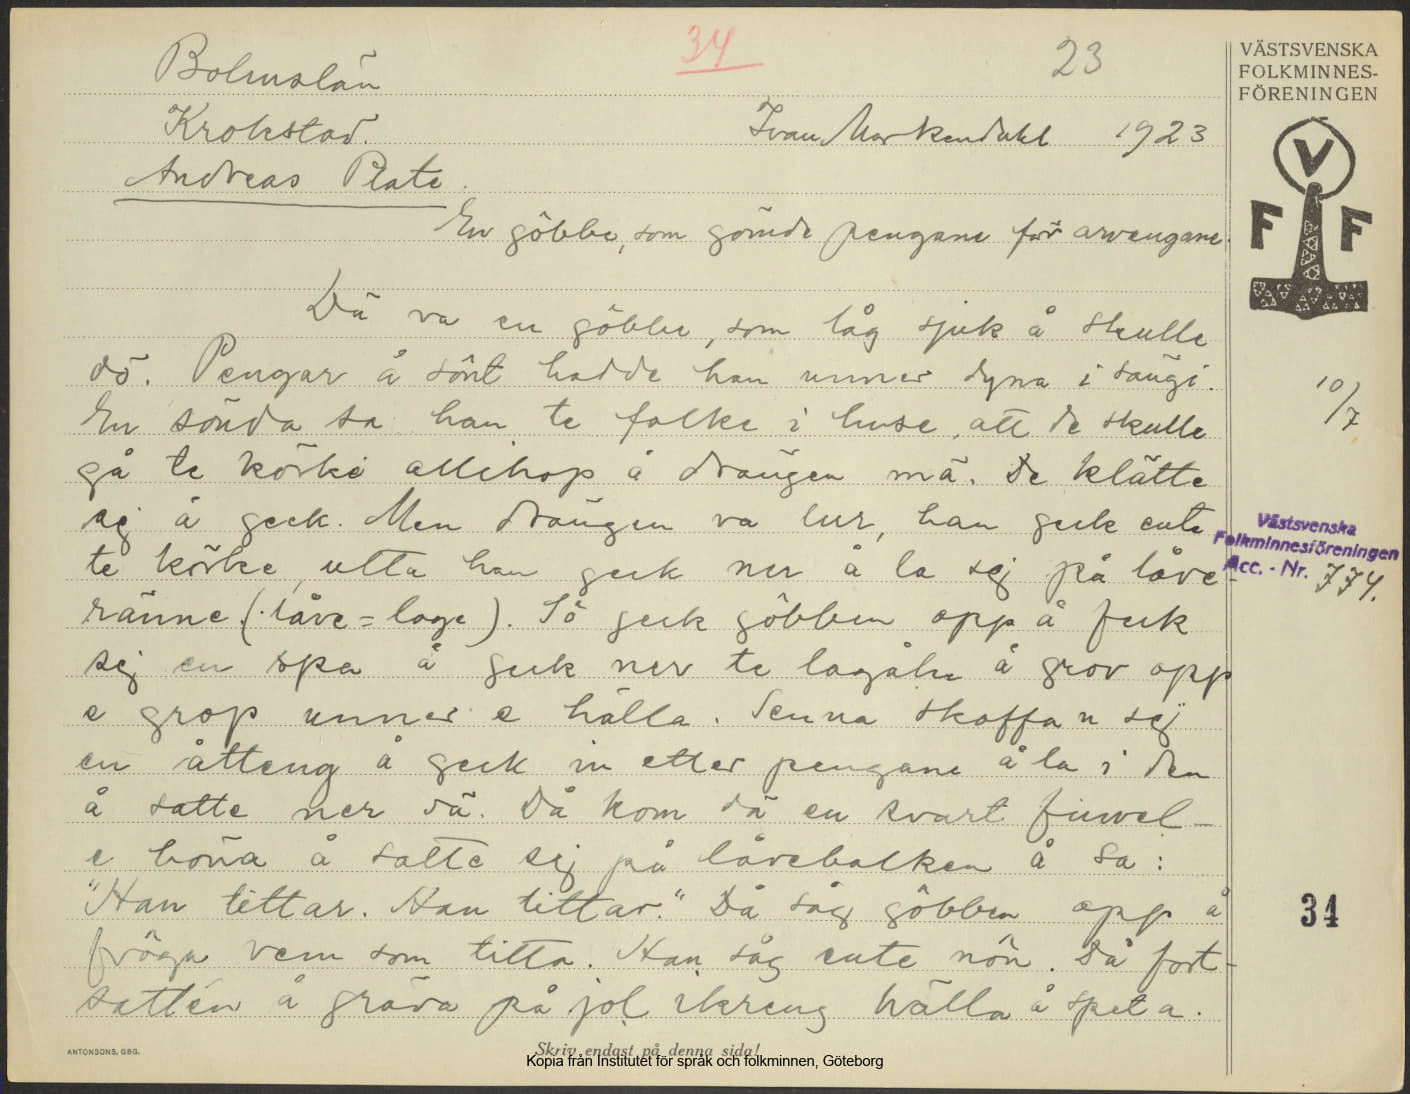 34
23
VÄSTSVENSKA
FOLKMINNES-
FÖRENINGEN
Bohuslän
Krokstad.
Ivan Markendahl 1923
Andreas Plate.
V
F F
En göbbe, som gömde pengane för arvengane.
Dä va en göbbe, som låg sjuk å skulle
dö. Pengar å sönt hadde han unner dyna i sängi.
En sönda sa han te folke i huse, att de skulle
gå te körke allihop å drängen mä. De klätte
sej å geck. Men drängen va lur, han geck ente
te körke, utta han geck ner å la sej på låve-
ränne (låve = loge). Så geck göbben opp å feck
sej en spa å geck ner te lagåln å grov opp
e grop unner e hälla. Senna skaffa n sej
en åtteng å geck in etter pengane å la i den
å satte ner dä. Då kom dä en svart fiuvel-
e höna å satte sej på låvebalken å sa:
"Han tittar. Han tittar." Då såg göbben opp å
fröga vem som titta. Han såg ente nön. Då fort-
satten å gräva på jol ikreng hälla å speta.
10/7
Västsvenska
Folkminnesföreningen
Acc. - Nr. 774.
34
ANTONSONS, GBG.
Skriv endast på denna sida!
Kopia från Institutet för språk och folkminnen, Göteborg